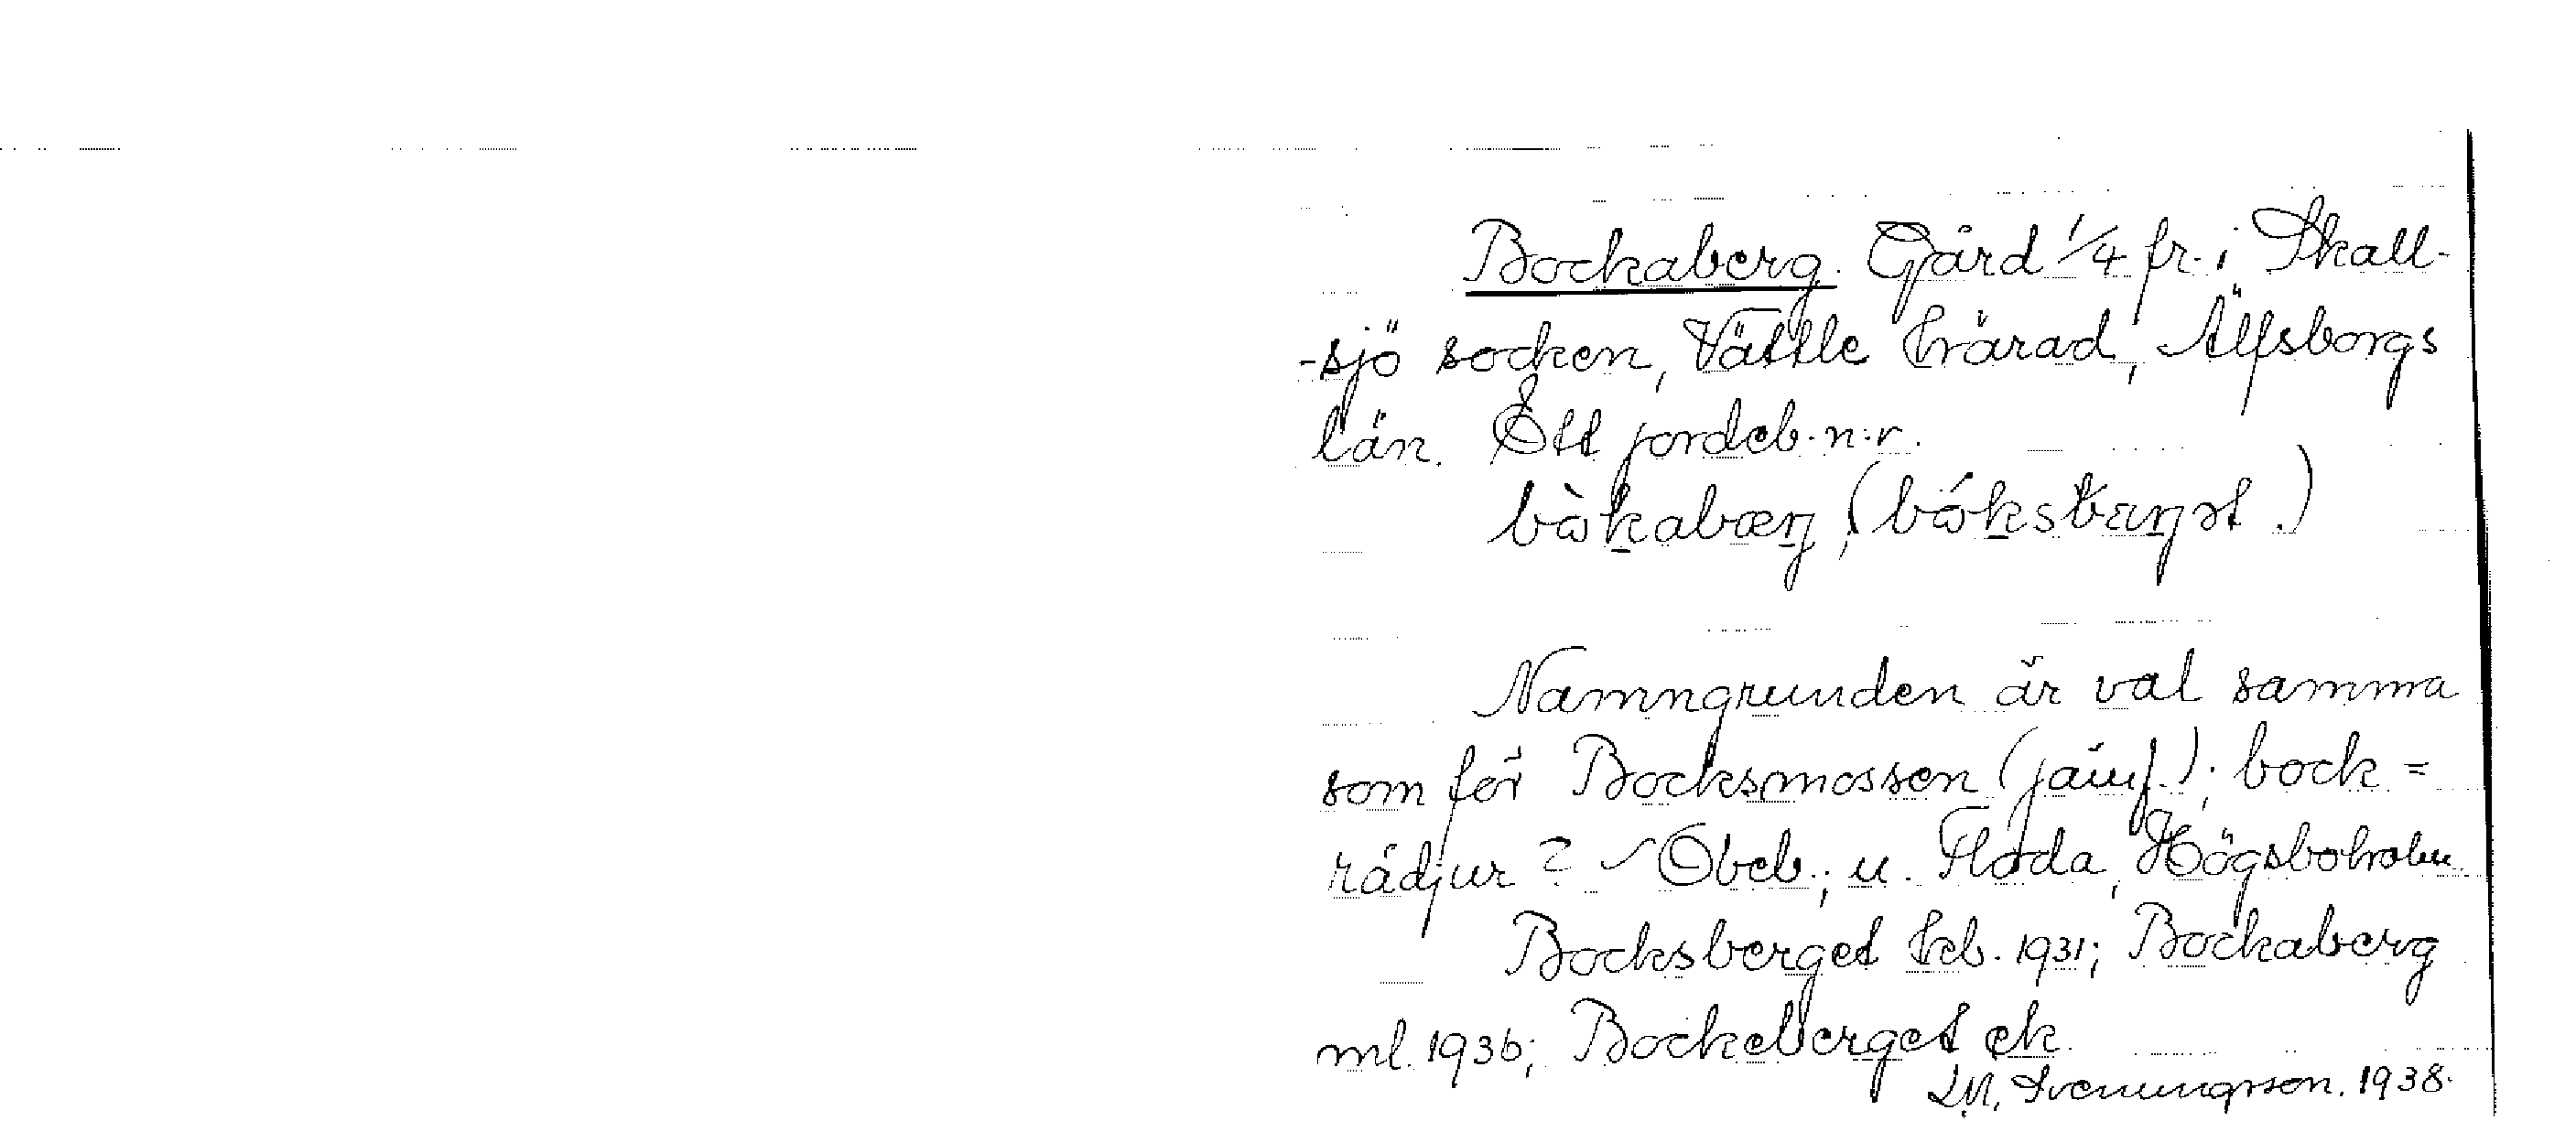 Bockaberg. Gård 1/4 fr. i Skall-
-sjö socken, Vättle härad, Älfsborgs
län. Ett jordeb.n:r.
bòkabærg, (bóksbærgət.)
Namngrunden är väl samma
som för Bocksmossen (jämf.); bock =
rådjur? ~ Obeb.; u. Floda, Högsboholm.
Bocksberget hcb. 1931; Bockaberg
ml. 1936; Bockeberget ek.
Svenungsson. 1938.